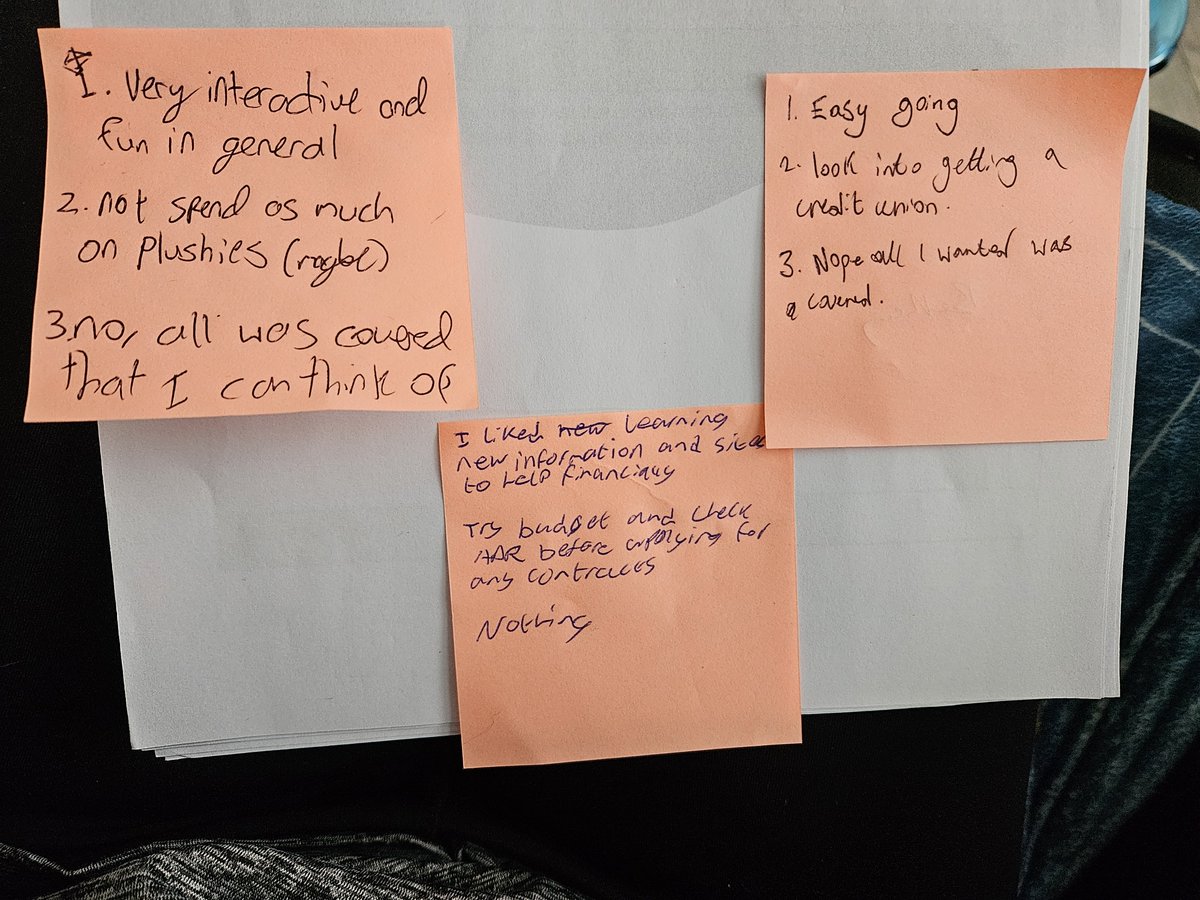 1. Very interactive and
fun in general
2. not spend as much
on plushies
3. no, all was covered
that I can think of
1. Easy going
2. look into getting a
credit union.
3. Nope all I wanted was
covered.
I liked new learning
new information and sites
to help financially
Try budget and check
before applying for
any contracts
Nothing